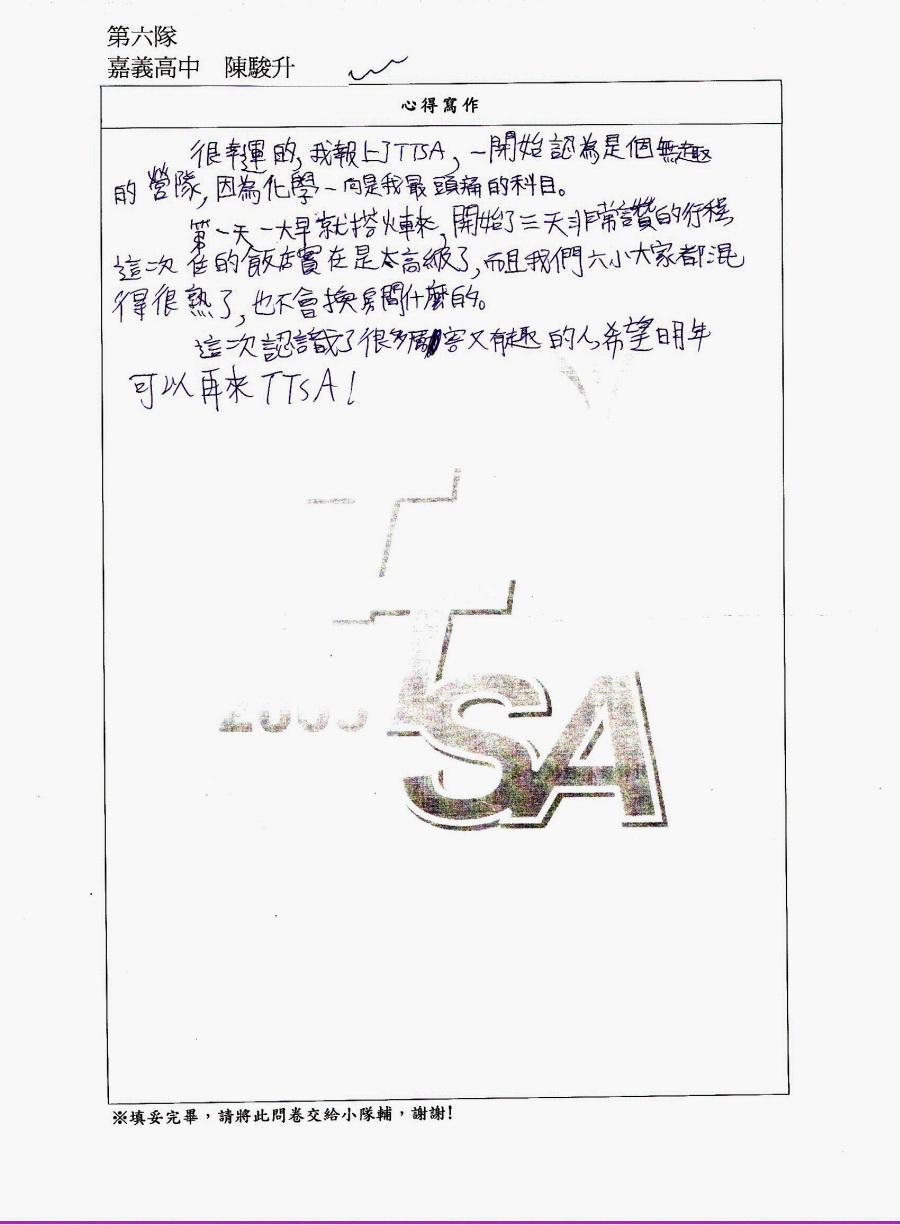 第六隊
嘉義高中 陳駿升
心得寫作
很幸運的,我報上了TTSA,一開始認為是個無趣
的營隊,因為化學一向是我最頭痛的科目。
第一天一大早就搭火車來,開始了三天非常讚的行程
這次住的飯店實在是太高級了,而且我們六小大家都混
得很熟了,也不會換房間什麼的。
這次認識了很多厲害又有趣的人,希望明年
可以再來TTSA!
TTSA
※填妥完畢,請將此問卷交給小隊輔,謝謝!